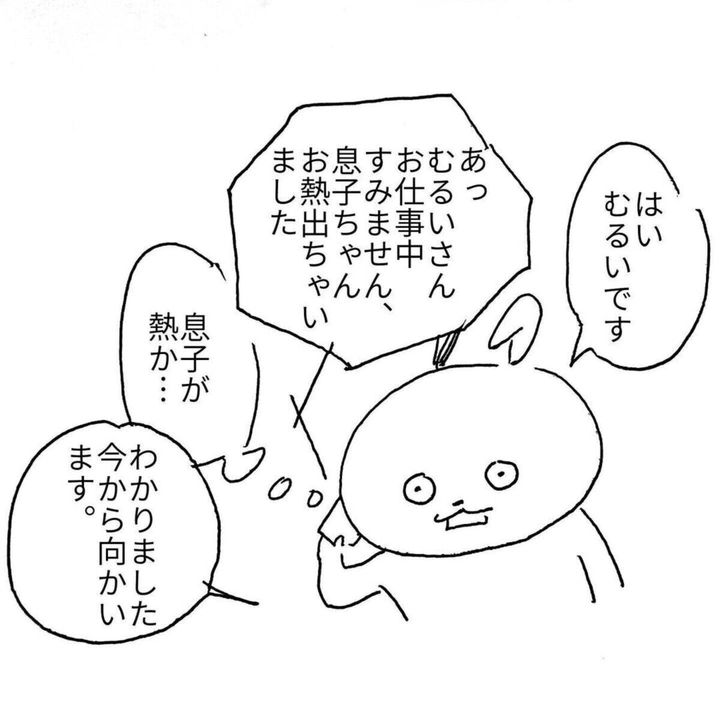 はい
むるいです
あっ
むるいさん
お仕事中
すみません、
息子ちゃん
お熱出ちゃい
ました
息子が
熱か…
わかりました
今から向かい
ます。